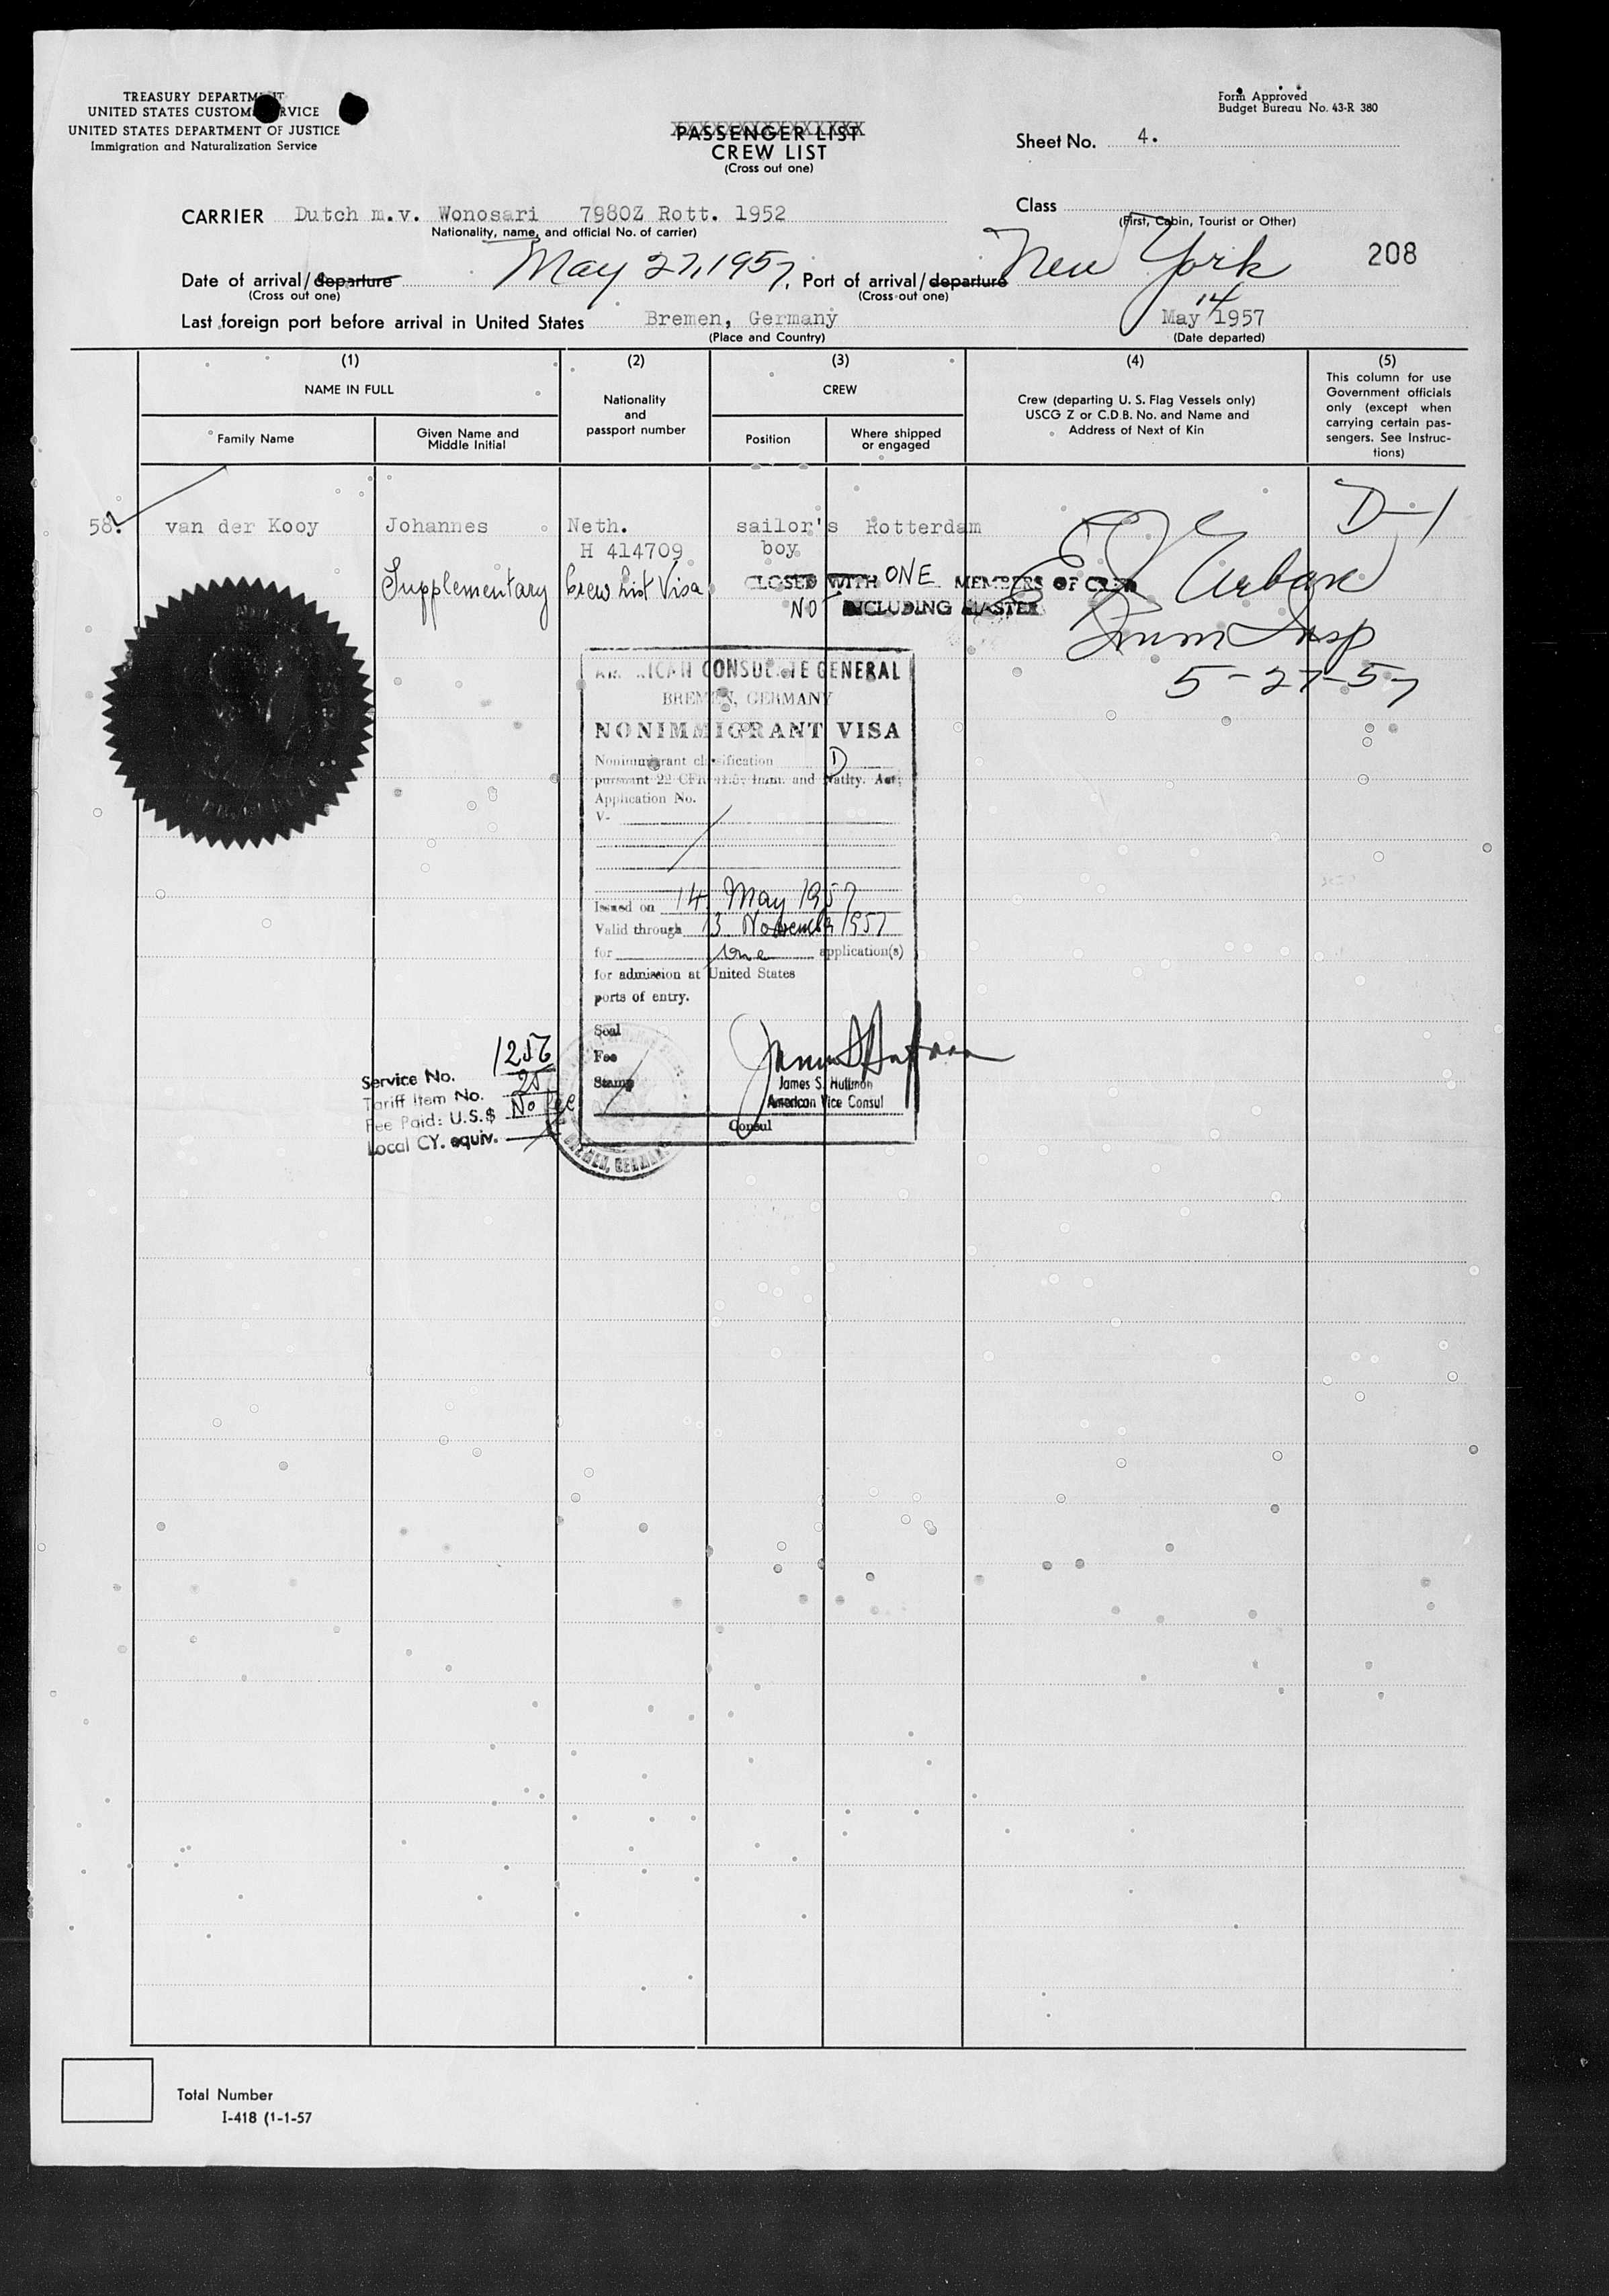 TREASURY DEPARTMENT
UNITED STATES CUSTOMS SERVICE
UNITED STATES DEPARTMENT OF JUSTICE
Immigration and Naturalization Service
Form Approved
Budget Bureau No. 43-R 380
PASSENGER LIST
CREW LIST
(Cross out one)
Sheet No. 4.
CARRIER Dutch m.v. Wonosari 7980Z Rott. 1952
Nationality, name, and official No. of carrier)
Class
(First, Cabin, Tourist or Other)
208
Date of arrival/departure May 27, 1957. Port of arrival/departure New York
(Cross out one) (Cross out one)
Last foreign port before arrival in United States Bremen, Germany May 14 1957
(Place and Country) (Date departed)
(1) (2) (3) (4) (5)
NAME IN FULL
Family Name
Given Name and
Middle Initial
Nationality
and
passport number
CREW
Position
Where shipped
or engaged
Crew (departing U. S. Flag Vessels only)
USCG Z or C.D.B. No. and Name and
Address of Next of Kin
This column for use
Government officials
only (except when
carrying certain pas-
sengers. See Instruc-
tions)
58. van der Kooy Johannes Neth. sailor's Rotterdam D-1
H 414709 boy
Supplementary Crew List Visa
CLOSED WITH ONE MEMBERS OF CREW
NOT INCLUDING MASTER
E J Urban
Imm Insp
5-27-57
AMERICAN CONSULATE GENERAL
BREMEN, GERMANY
NONIMMIGRANT VISA
Nonimmigrant classification D
pursuant 22 CFR 41.5; Imm. and Natlty. Act;
Application No.
V-
Issued on 14 May 1957
Valid through 13 November 1957
for One application(s)
for admission at United States
ports of entry.
Seal
Fee
Stamp
James S. Huffman
American Vice Consul
Consul
Service No. 1256
Tariff Item No. 25
Fee Paid: U.S.$ No fee
Local CY. equiv.
BREMEN, GERMANY
Total Number
I-418 (1-1-57